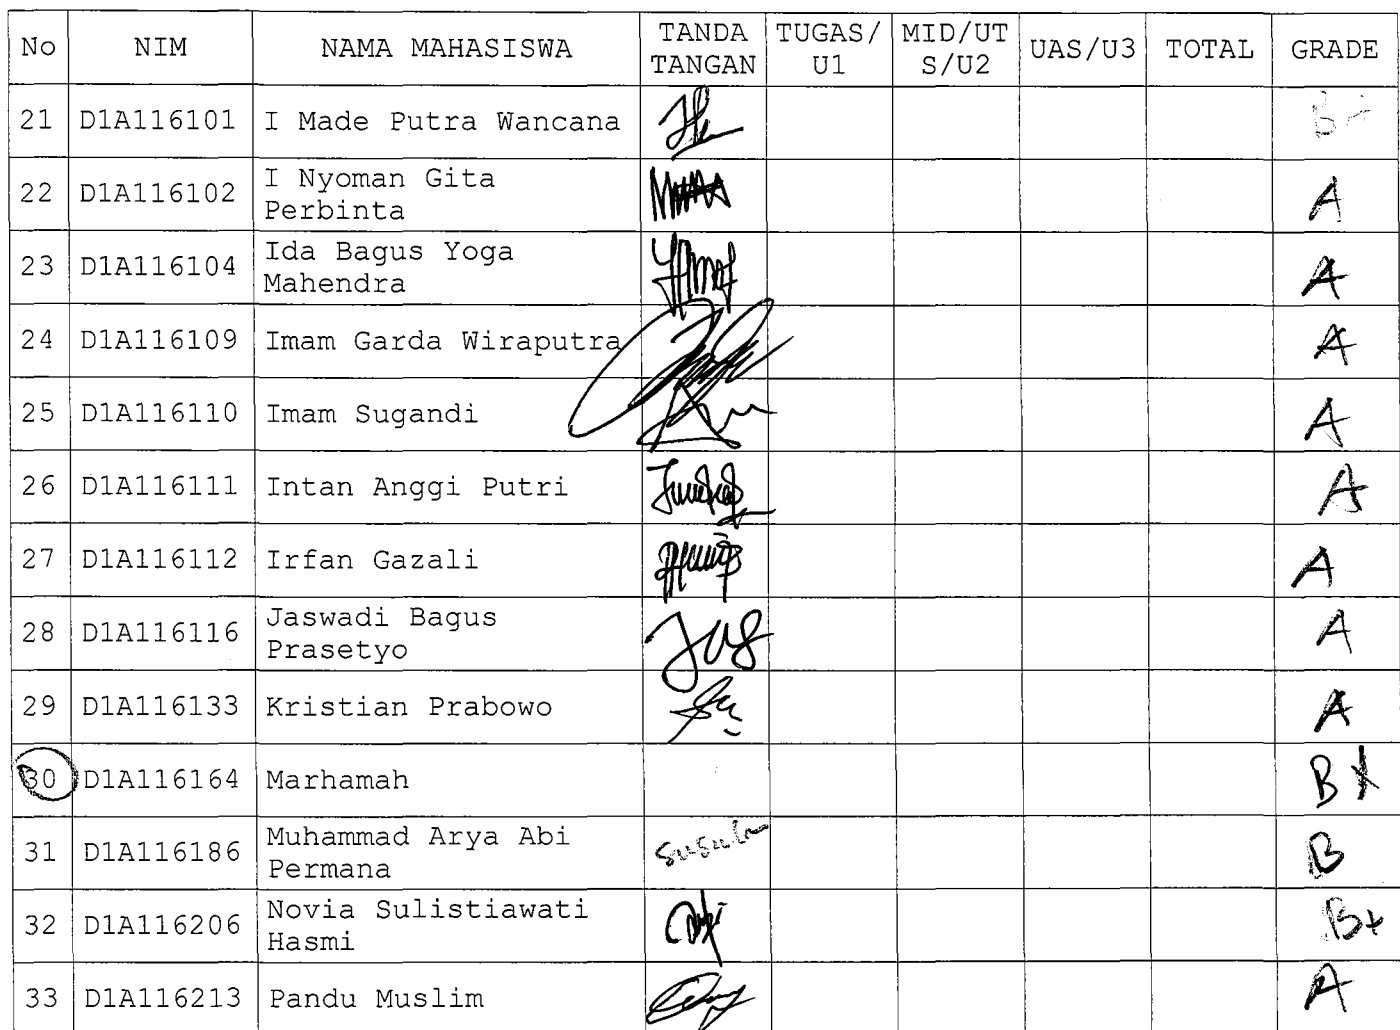 No NIM NAMA MAHASISWA TANDA TANGAN TUGAS/U1 MID/UTS/U2 UAS/U3 TOTAL GRADE
21 D1A116101 I Made Putra Wancana B+
22 D1A116102 I Nyoman Gita Perbinta A
23 D1A116104 Ida Bagus Yoga Mahendra A
24 D1A116109 Imam Garda Wiraputra A
25 D1A116110 Imam Sugandi A
26 D1A116111 Intan Anggi Putri A
27 D1A116112 Irfan Gazali A
28 D1A116116 Jaswadi Bagus Prasetyo A
29 D1A116133 Kristian Prabowo A
30 D1A116164 Marhamah B+
31 D1A116186 Muhammad Arya Abi Permana B
32 D1A116206 Novia Sulistiawati Hasmi B+
33 D1A116213 Pandu Muslim A